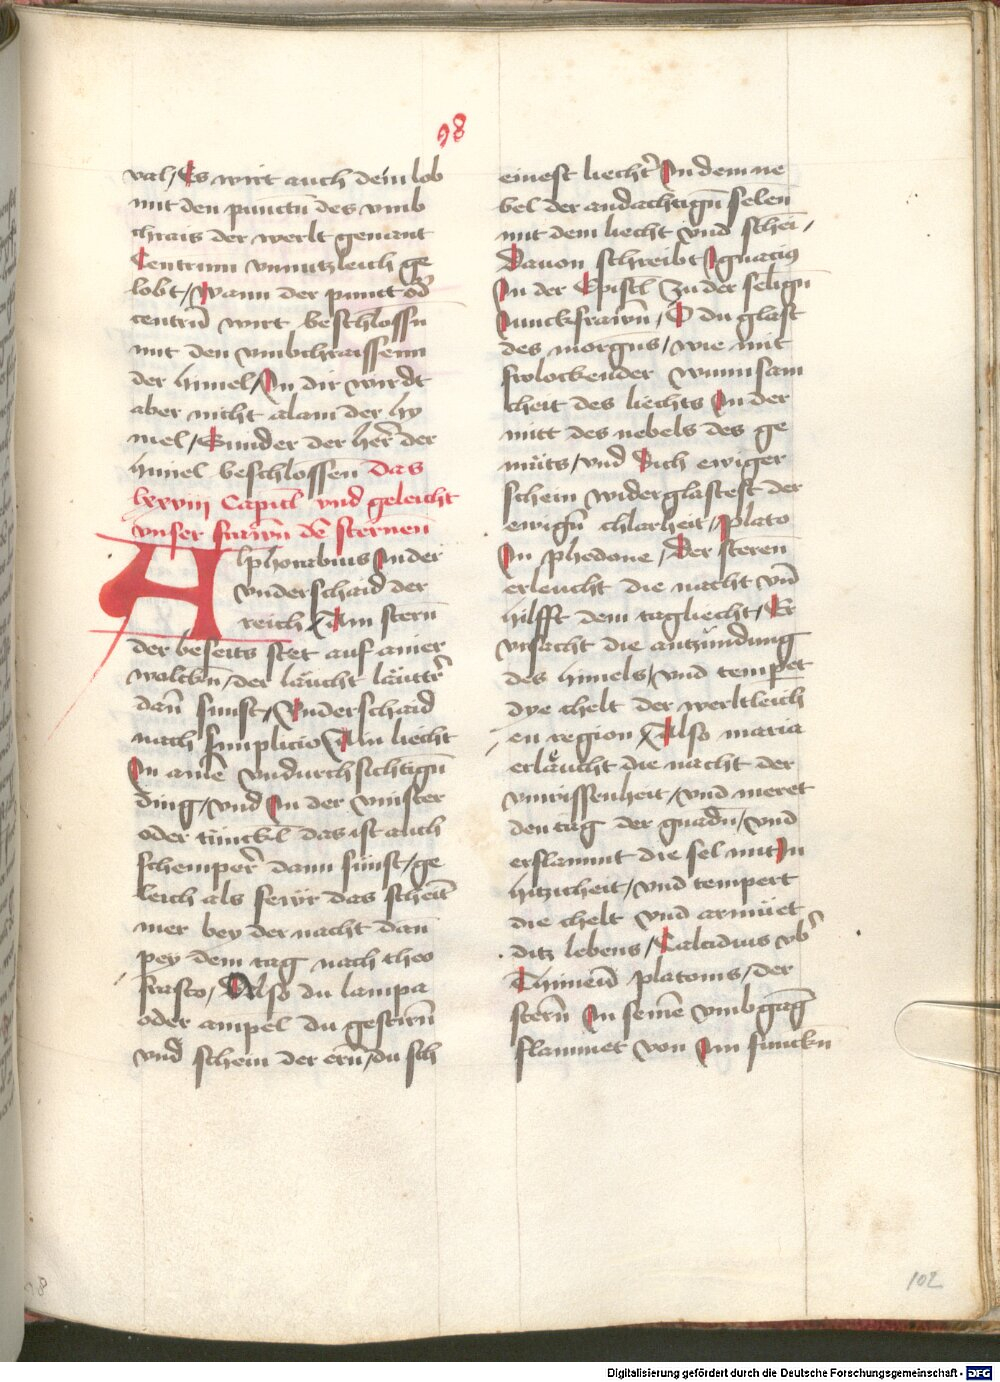 98
val / Es wirt auch dein lob
mit den punctn̄ des vmb
chrais der werlt genant
Centrum vnnutzleich ge
lobt / Wann der punct od̓
centrū wirt beschlossn
mit den vmbchraissenn
der himel / In dir wirdt
aber nicht alain der hy
mel / Sunder der her̓ der
himel beschlossen̄ das
lxxviii Capitl̄ vnd geleicht
vnser frawn̄ dē sternen̄
Alphorabius In der
vnderschaid der
reich Ain stern̄
der beseits stet auf ainer
wolckn̄ / der läucht läuttr̓
dan̄ sunst / Vnderschaid
nach simplicio Ain liecht
In ainē vndurchsichtign̄
ding / vnd In der vinster
oder tünckl̄ das ist auch
schemper̓ dann sünst / ge
leich als fewr das scheīt
mer bey der nacht dan̄
pey dem tag nach theo
frasto / Also du lampa
oder ampel du gestirn̄
vnd schein der ern̄ / du sch
einest liecht̓ In dem ne
bel der andächtign̄ selen̄
mit dem liecht vnd schei /
Dauon schreibt Ignacius
In der Epistl̄ Zu der selign̄
Junckfrawn̄ / O du glast
des morgn̄s / wie mit
frolockender wunnsam
cheit des liechts In der
mitt des nebels des ge
müts / vnd Dich ewiger
schein widerglastest der
ewign̄ chlarheit / plato
In phedone / Der steren̄
erleucht die nacht vn̄
hilfft dem tagliecht / Er
vrsacht die antzündung
des himels / vnd tempert
dye chelt der werltleich
en region Also maria
erläucht die nacht der
vnwissenheit / vnd meret
den tag der gnadn̄ / vnd
erflammt die sel mit In
hitzicheit / vnd tempert
die chelt vnd armüet
ditz lebens / Calcidius vb̓
Thimeū platonis / der
stern̄ In seinē vmbgāg
flammet von Im funckn̄
102
Digitalisierung gefördert durch die Deutsche Forschungsgemeinschaft - DFG